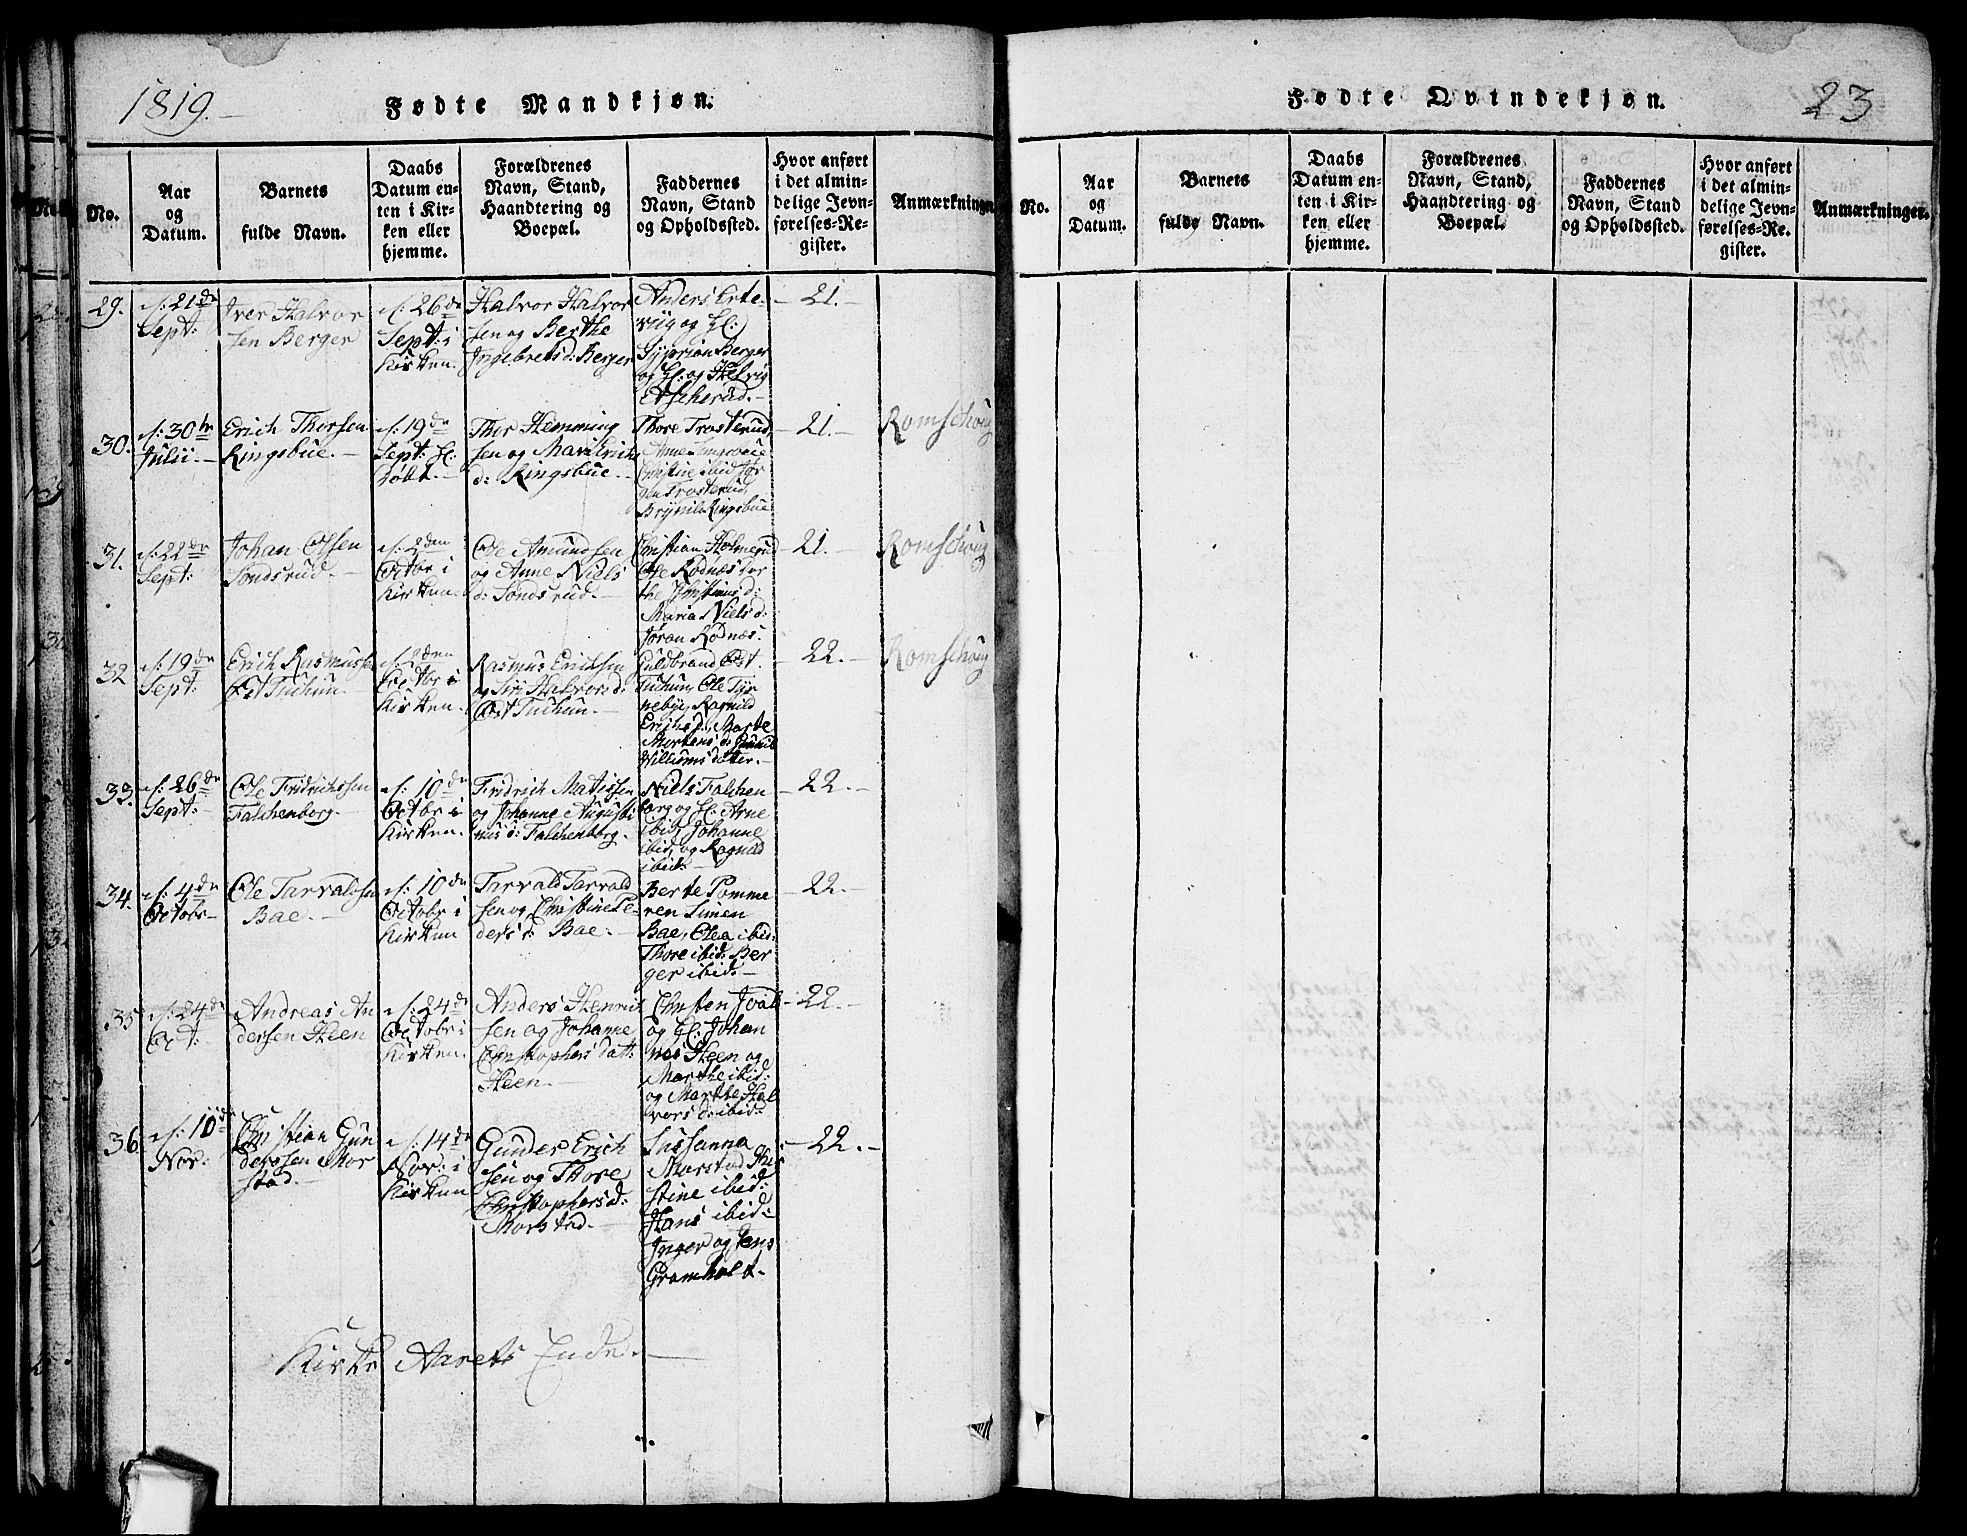 1819.
Fødte Mandkjøn.
No.
Aar
og
Datum.
Barnets
fulde Navn.
Daabs
Datum en-
ten i Kir-
ken eller
hjemme.
Forældrenes
Navn, Stand,
Haandtering og
Boepæl.
Faddernes
Navn, Stand
og Opholdssted.
Hvor anført
i det almin-
delige Jevn-
førelses-Re-
gister.
Anmærkninger.
29.
d: 21de
Sept:
Iver Halvor
sen Berger
d: 26de
Sept: i
Kirken.
Halvor Halvor
sen og Berthe
Ingebretsd: Berger
Anders Erte-
viig og H:
Syprian Berger
og H: og Helvig
Ascherud.
21.
30.
d: 30te
Julii.
Erich Thorsen
Ringsbue.
d: 19de
Sept: H:
Døbt.
Thor Hemming
sen og Mari Erichs
d: Ringsbue.
Thore Trosterud,
Anne Ringsbue
Christine ibid Jør
gen Trosterud,
Brynild Ringsbue
21.
Romschoug
31.
d: 22de
Sept:
Johan Olsen
Sondsrud.
d: 2den
Octbr i
Kirken.
Ole Amundsen
og Anne Niels
d: Sondsrud.
Christian Holmerud
Ole Rodnæs
the Christiansd:
Maria Nielsd:
Jøran Rodnæs:
21.
Romschoug
32
d: 19de
Sept:
Erich Rasmussen
Øst Tuchun.
d: 2den
Octbr i
Kirken.
Rasmus Erichsen
og Siri Halvorsd:
Øst Tuchun.
Guldbrand Øst
Tuchun, Ole Tyr
nebye, Ragnild
Erichsd:, Marte
Mortensd:, Gunild
Williumsdatter.
22.
Romschoug
33.
d: 26de
Sept:
Ole Fridrichssen
Falchenborg.
d: 10de
Octbr i
Kirken.
Fridrich Matissen
og Johanne Augusti
nusd: Falchenborg.
Niels Falchen
borg og H: Arne
ibid, Johanne
ibid, og Ragnild
ibid:
22.
34.
d: 4de
Octobr
Ole Tarvaldsen
Bae.
d: 10de
Octobr i
Kirken
Tarvald Tarvald
sen og Christine Pe-
dersd: Bae.
Berte Pomme
ren Simen
Bae, Olea ibid:
Thore ibid: Ber
ger ibid:
22.
35
d: 24de
Oct:
Andreas An
dersen Heen
d: 24de
Octobr i
Kirken.
Anders Henrich
sen og Johanne
Christophersdatt:
Heen.
Christen Joal
og H: Johan
nes Heen og
Marthe ibid:
og Marthe Hal
vorsd: ibid:
22.
36.
d: 10de
Nov:
Christian Gun
derssen Mor
stad.
d: 14de
Nov: i
Kirken
Gunder Erich
sen og Thore
Christophersd:
Morstad.
Sussanna
Morstad Kri
stine ibid:
Hans ibid:
Inger og Jens
Gramholt.
22.
Kirke Aarets Ende.
Fødte Qvindekjøn.
23
No.
Aar
og
Datum.
Barnets
fulde Navn.
Daabs
Datum en-
ten i Kir-
ken eller
hjemme.
Forældrenes
Navn, Stand,
Haandtering og
Boepæl.
Faddernes
Navn, Stand
og Opholdssted.
Hvor anført
i det almin-
delige Jevn-
førelses-Re-
gister.
Anmærkninger.